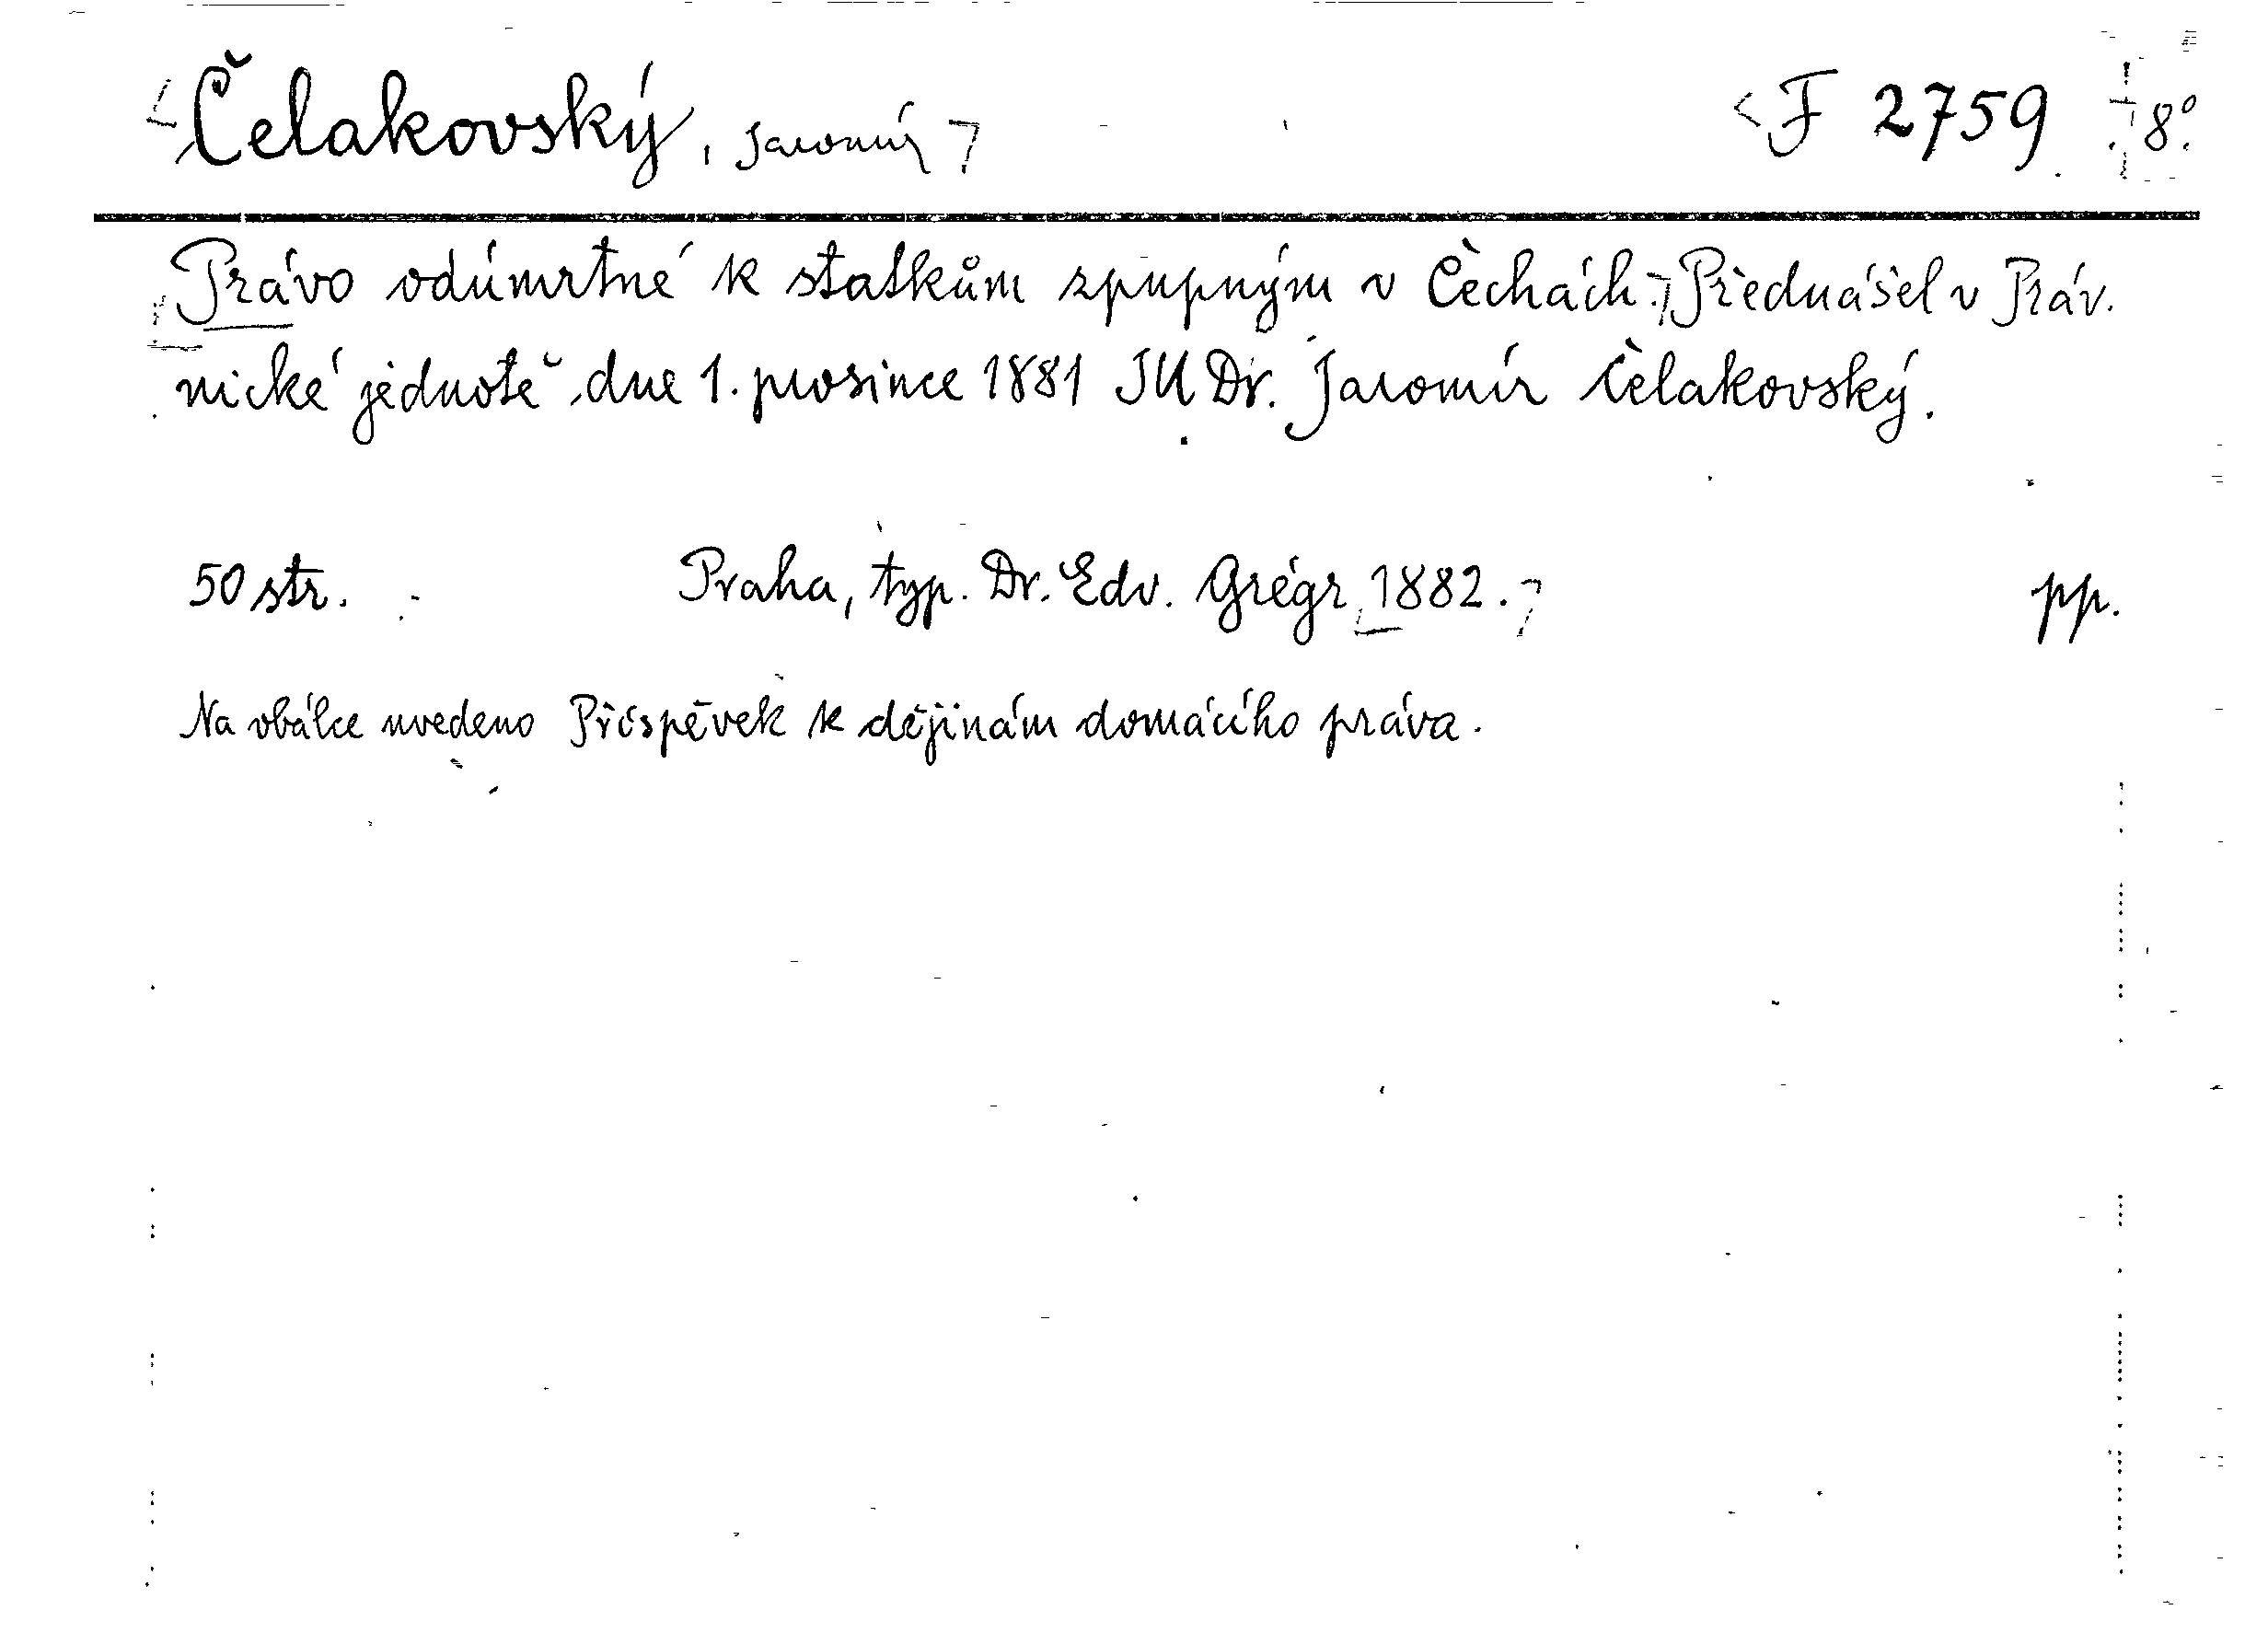 Čelakovský, Jaromír F 2759 8°
Právo odúmrtné k statkům zpupným v Čechách. Přednášel v Práv.
nické jednotě dne 1. prosince 1881 JUDr. Jaromír Čelakovský.
50 str. Praha, typ. Dr. Edv. Grégr 1882. pp.
Na obálce uvedeno Příspěvek k dějinám domácího práva.